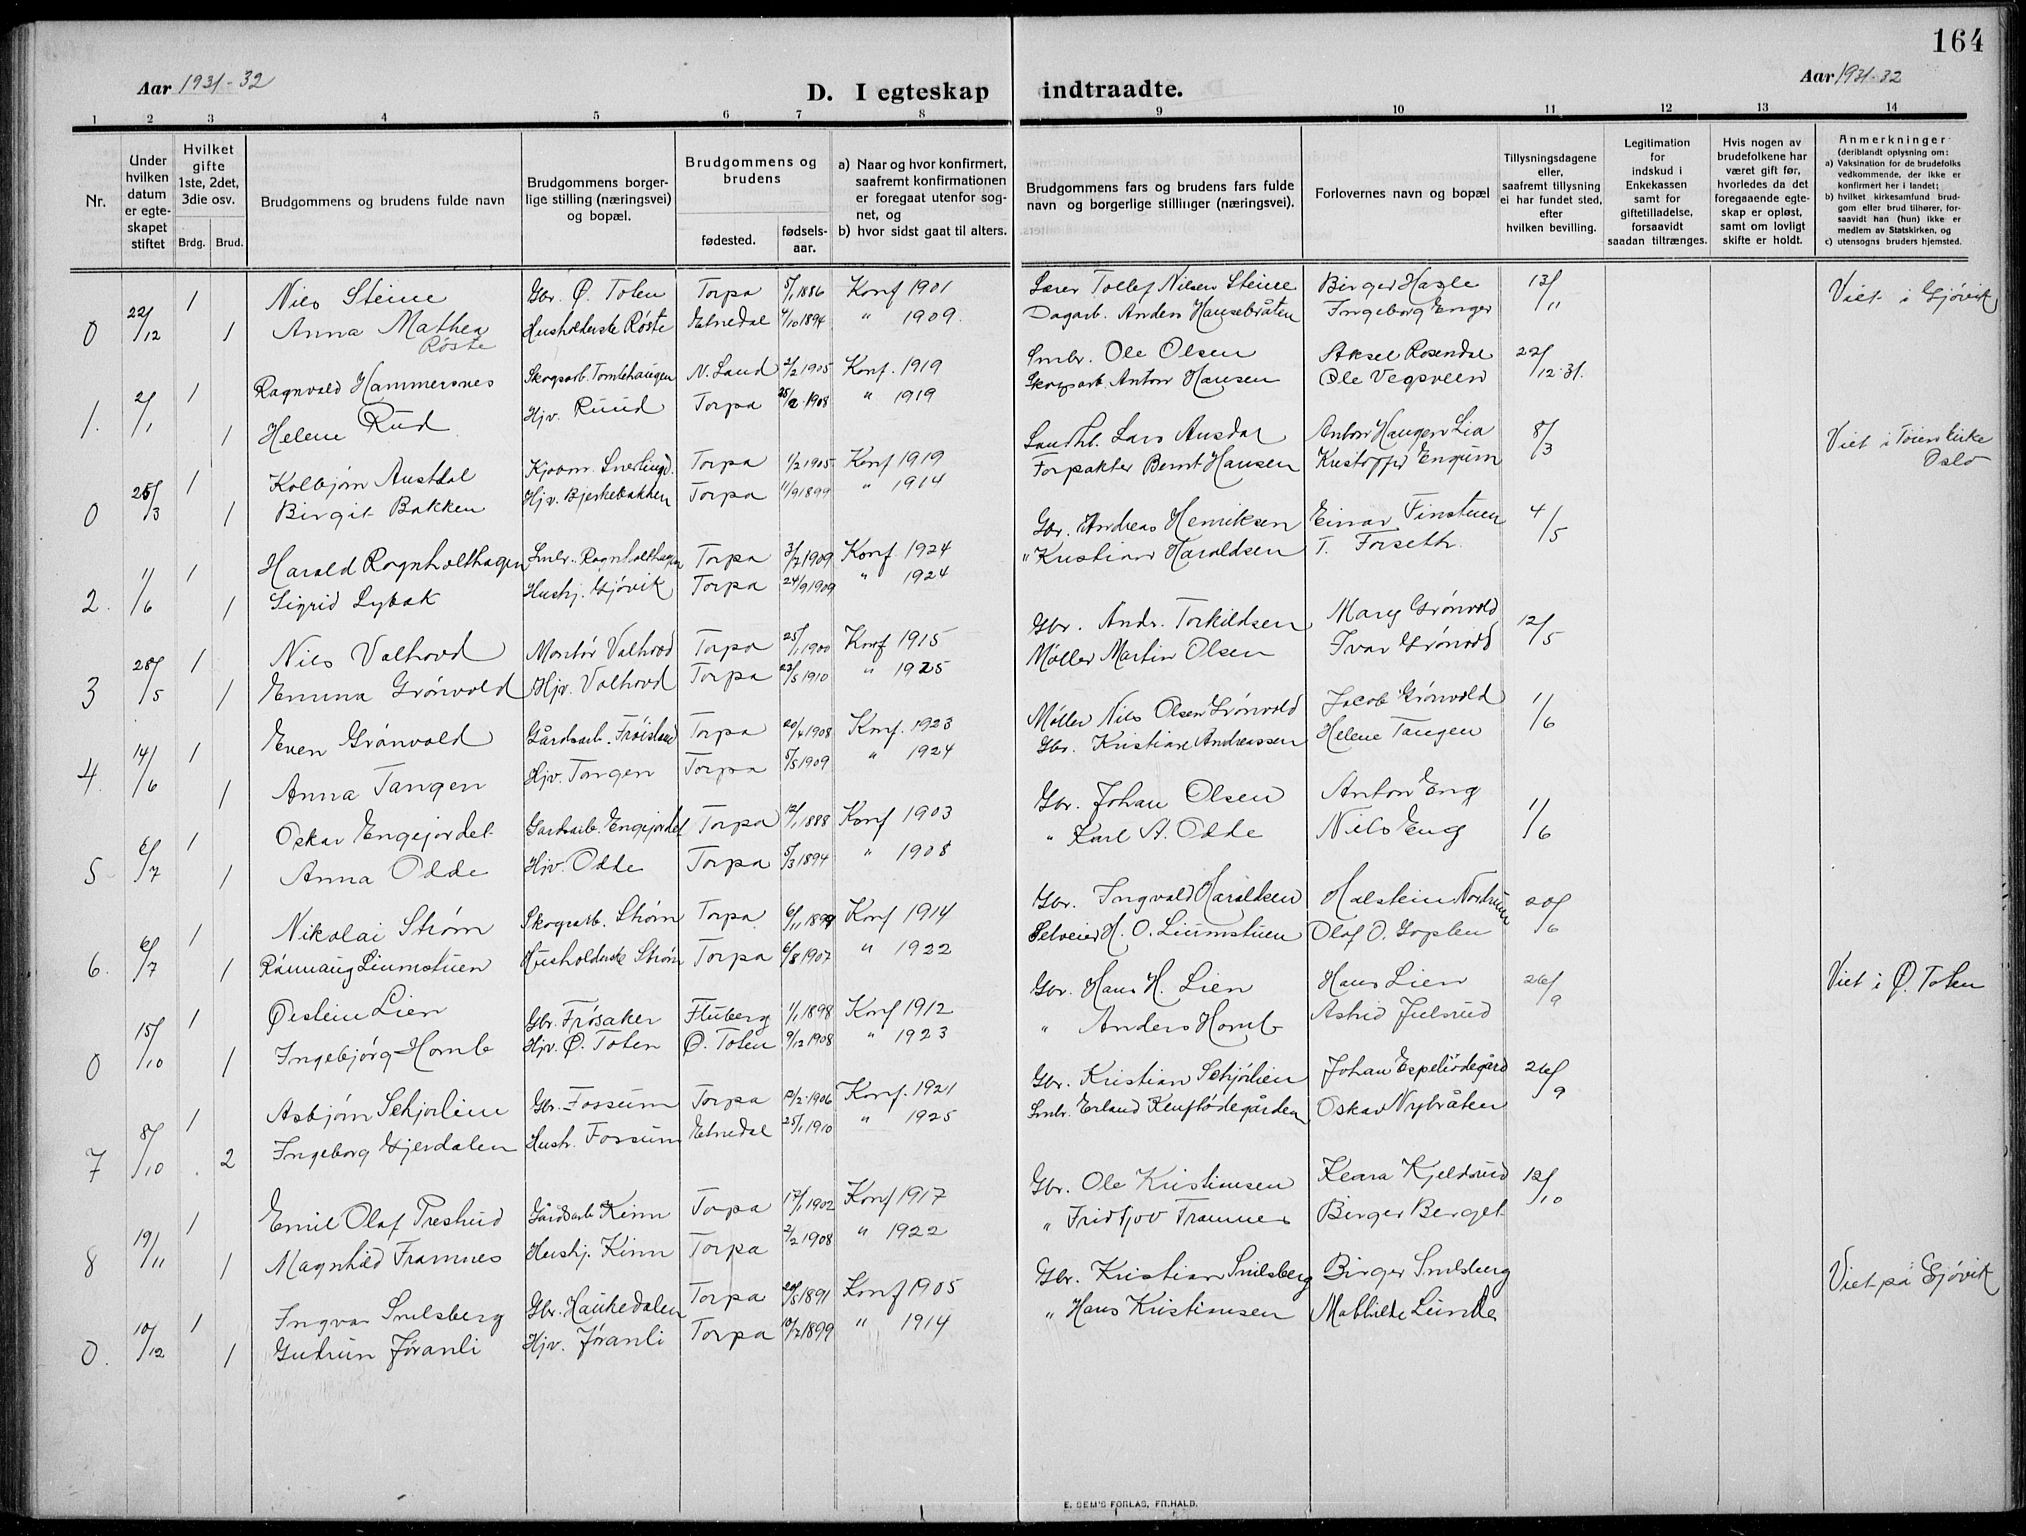 164
Aar 1931-32
D. I egteskap indtraadte.
Aar 1931-32
1 2 3 4 5 6 7 8 9 10 11 12 13 14
Nr.
Under hvilken datum er egte-skapet stiftet
Hvilket gifte 1ste, 2det, 3die osv.
Brdg. Brud.
Brudgommens og brudens fulde navn
Brudgommens borger-lige stilling (næringsvei) og bopæl.
Brudgommens og brudens
fødested.
fødsels-aar.
a) Naar og hvor konfirmert, saafremt konfirmationen er foregaat utenfor sog-net, og
b) hvor sidst gaat til alters.
Brudgommens fars og brudens fars fulde navn og borgerlige stillinger (næringsvei).
Forlovernes navn og bopæl
Tillysningsdagene eller, saafremt tillysning ei har fundet sted, efter hvilken bevilling.
Legitimation for indskud i Enkekassen samt for giftetilladelse, forsaavidt saadan tiltrænges.
Hvis nogen av brudefolkene har været gift før, hvorledes da det foregaaende egte-skap er opløst, samt om lovligt skifte er holdt.
Anmerkninger (deriblandt oplysning om:
a) Vaksination for de brudefolks vedkommende, der ikke er konfirmert her i landet;
b) hvilket kirkesamfund brud-gom eller brud tilhører, for-saavidt han (hun) ikke er medlem av Statskirken, og
c) utensogns bruders hjemsted.
0 22/12 1 Nils Steine Gbr. Ø. Toten Torpa 5/1 1886 Konf 1901 Lærer Tollef Nilsen Steine Birger Hasle 13/11 Viet i Gjøvik
1 Anna Mathea Røste Husholderske Røste Etnedal 4/10 1894 " 1909. Dagarb. Anders Hansebråten Ingeborg Enger
1. 2/1 1 Ragnvald Hammersnes Skogsarb. Tomlehaugen N. Land 2/2 1905 Konf. 1919 Smbr. Ole Olsen Aksel Rosendal 22/12.31.
1 Helene Rud Hjv. Ruud Torpa 28/2 1908 " 1919 Skogsarb. Anton Hansen Ole Vegsveen
0 25/3 1 Kolbjørn Austdal Kjøbm. Snertingd. Torpa 1/2 1905 Konf 1919 Landh. Lars Ausdal Anton Haugen Lia 8/3 Viet i Tøienkirke Oslo
1 Birgit Bakken Hjv. Bjerkebakken Torpa 11/9 1899 " 1914 Forpakter Bernt Hansen Engum
2. 11/6 1 Harald Rognholthagen Smbr. Rognholthagen Torpa 3/7 1909 Konf 1924 Gbr. Andreas Henriksen Einar Finstuen 4/5
1 Sigrid Lybak Hushj. Gjøvik Torpa 24/9 1909 " 1924 " Kristian Haraldsen T. Forseth.
3 28/5 1 Nils Valhovd Montør Valhovd Torpa 25/1 1900 Konf 1915 Gbr. Andr. Torkildsen Mary Grønvold 12/5
1 Emma Grønvold Hjv. Valhovd Torpa 23/5 1910 " 1925 Møller Martin Olsen Ivar Grønvold
4. 14/6 1 Even Grønvold Gårdsarb. Frøisland Torpa 20/4 1908 Konf. 1923 Møller Nils Olsen Grønvold Jacob Grønvold 1/6
1 Anna Tangen Hjv. Tangen Torpa 5/5 1909 " 1924 Gbr. Kristian Andreassen Helene Tangen
5 6/7 1 Oskar Engejordet Gardsarb. Engejordet Torpa 12/1 1888 Konf 1903 Gbr. Johan Olsen Anton Eng 1/6
1 Anna Odde Hjv. Odde Torpa 5/3 1894 " 1908 " Karl A. Odde Nils Eng
6. 6/7 1 Nikolai Strøm Skogsarb. Strøm Torpa 6/11 1899 Konf 1914 Gbr. Ingvald Haraldsen Halstein Nordrum 20/6
1 Rønnaug Liumstuen Husholderske Strøm Torpa 6/8 1907 " 1922 Selveier H. O. Liumstuen Olaf O. Goplen
0 15/10 1 Øistein Lien Gbr. Frøsaker Fluberg 1/1 1898 Konf 1912 Gbr. Hans H. Lien Hans Lien 26/9 Viet i Ø. Toten
1 Ingebjørg Homb Hjv. Ø. Toten Ø. Toten 9/12 1908 " 1923 " Anders Homb Astrid Julsrud
7 8/10 1 Asbjørn Schjørlien Gbr. Fossum Torpa 12/2 1906 Konf. 1921 Gbr. Kristian Schjørlien Johan Espeliødegård 26/9
2 Ingeborg Gjerdalen Hush. Fossum Etnedal 25/1 1910 " 1925 Smbr. Erland Oskar Nybråten
8 19/11 1 Emil Olaf Preshud Gårdsarb Kinn Torpa 17/1 1902 Konf 1917 Gbr. Ole Kristiansen Klara Kjeldsrud 12/10
1 Magnhild Framnes Hushj. Kinn Torpa 2/2 1908 " 1922 " Fridtjov Framnes Birger Berget
0. 10/12 1 Ingvar Snilsberg Gbr. Haukedalen Torpa 20/5 1891 Konf 1905 Gbr. Kristian Snilsberg Birger Snilsberg Viet på Gjøvik
1 Gudrun Jøranli Hjv. Jøranli Torpa 10/2 1899 " 1914 " Hans Kristiansen Mathilde Lunde
E. SEM'S FORLAG, FR.HALD.